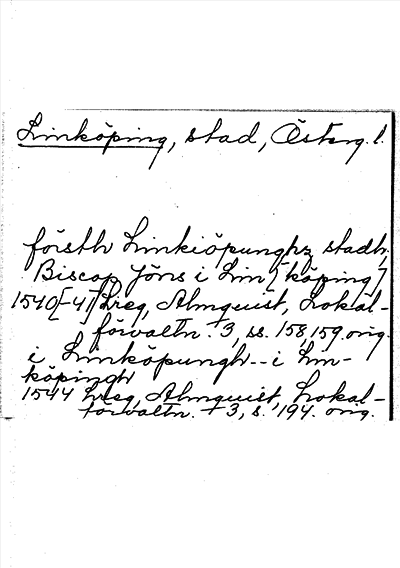 Linköping, stad, Österg. l.
försth Linkiöpunghz stadh,
Biscop Jöns i Lin[köping]
1540[-41] Lreg, Almquist, Lokal-
förvaltn. 3, ss. 158, 159. orig.
i Linköpungh -- i Lin-
köpingh
1544 Lreg, Almquist, Lokal-
förvaltn. 3, s. 194. orig.